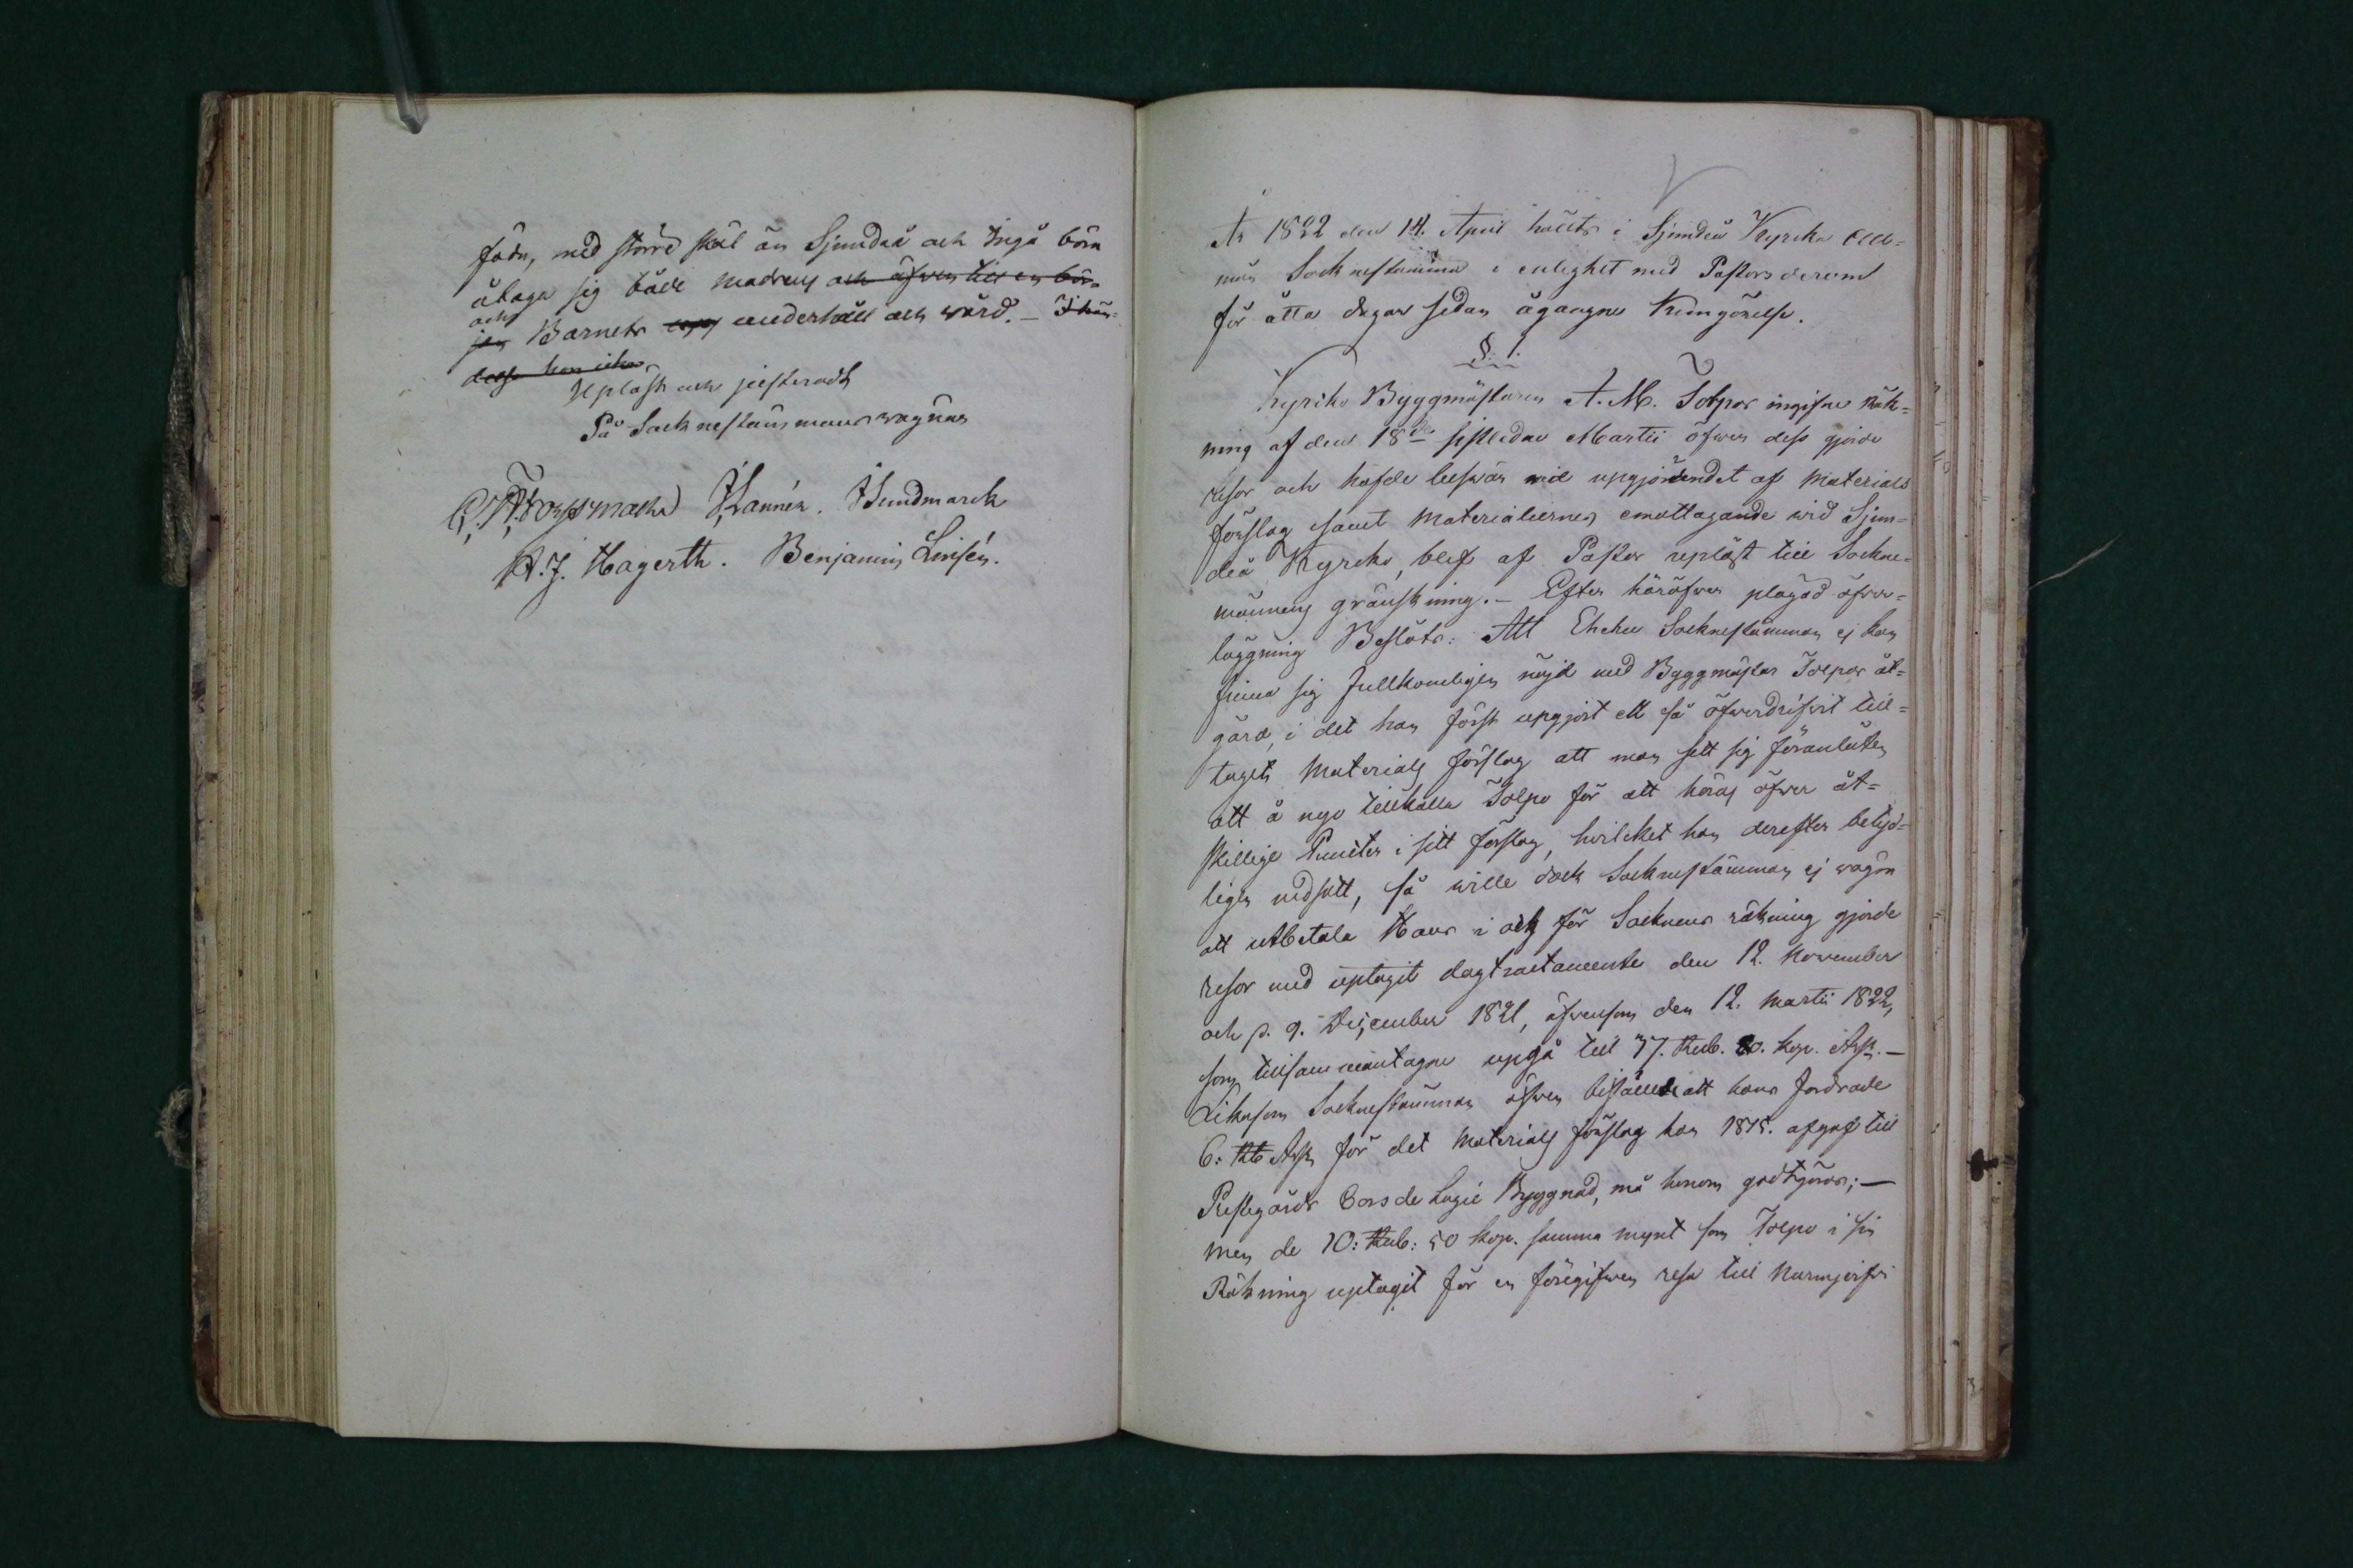 föda, med större skäl än Sjundeå och Ingå böra
åtaga sig både modrens och äfven till en bör-
och
jan Barnets upp underhåll och wård. — I hän-
delse han icke
Upläst och justeradt
På Socknestämmans wägnar
Forssman Hannén. Sundmarck
A. J. Hagerth. Benjamin Linsén.
År 1822 den 14. April hölts i Sjundeå Kyrka All-
män Socknestämma i enlighet med Pastors derom
för åtta dagar sedan ågangne Kungörelse.
§. 1.
Kyrko Byggmästaren A. M. Tolpos ingifne Räk-
ning af den 18de sistledne Martii öfwer dess gjorde
resor och hafde beswär wid upgjörandet af Materials
förslag samt Materialiernes emottagande wid Sjun-
deå Kyrka, blef af Pastor upläst till Sockne-
männens granskning. — Efter häröfwer plägad öfwer-
läggning Beslöts: Att Ehuru Socknestämman ej kan
finna sig fullkomligen nöjd med Byggmästar Tolpos åt-
gärd, i det han först upgjort ett så öfwerdrifvit till-
taget Materials förslag att man sett sig föranlåten
att å nyo tillkalla Tolpo för att höras öfwer åt-
skillige Puncter i sitt förslag, hvilcket han derefter betyd-
ligen nedsatt, så wille dock Socknestämman ej wägra
att utbetala Hans i och för Socknens räkning gjorde
resor med uptagit dagtractamente den 12. November
och p. 9. December 1821, äfvensom den 12. Martii 1822,
som tillsammantagne upgå till 77. Rub. 20. kop. Ass. —
Likasom Socknestämman äfwen biföll att hans fordrade
6: Rb Ass för det Materials förslag han 1815. afgaf till
Prestegårds Corps de Logie Byggnad, må honom godtgöras; —
men de 10: Rub: 50 kop. samma mynt som Tolpo i sin
Räkning uptagit för en föregifwen resa till Nurmijerfvi